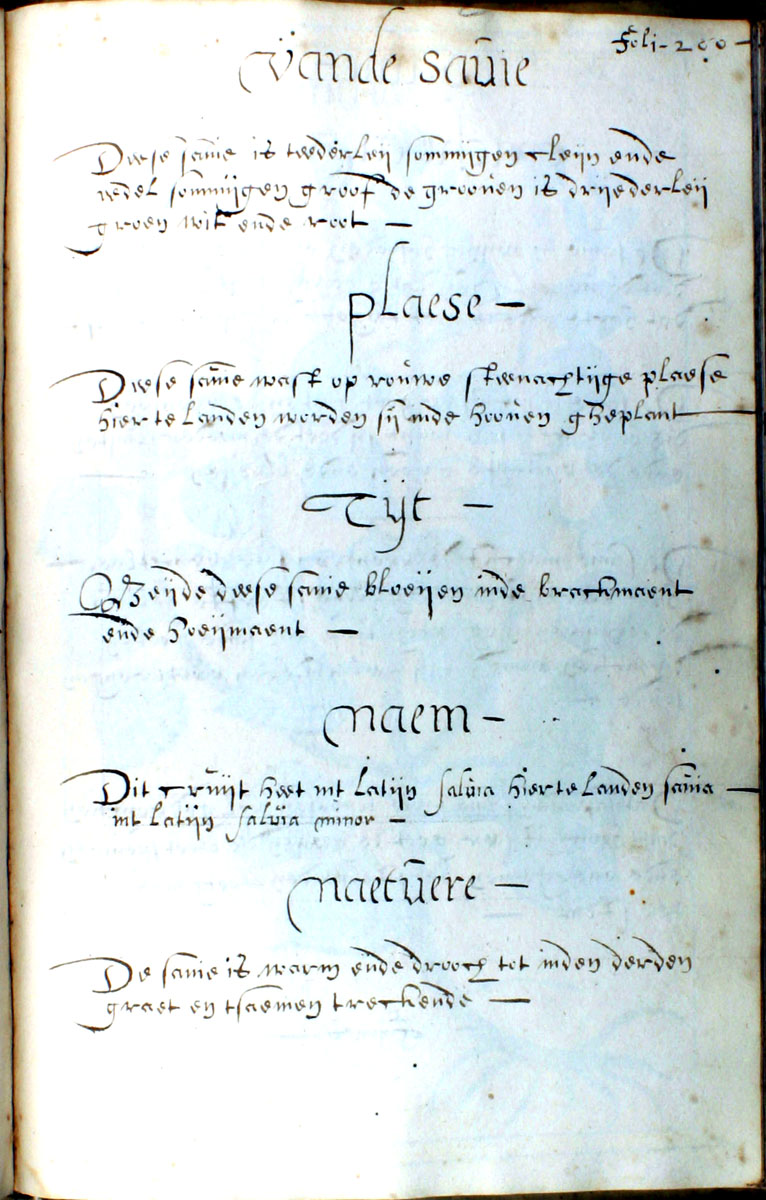 foli - 200 -
vande sauie
Deese sauie is tweederleij sommijgen cleijn ende
edel sommijgen groof de groouen is drijederleij
groen wit ende root —
plaese —
Deese sauie wast op rouwe steenachtijge plaese
hier te landen worden sij inde hoouen gheplant
Tijt —
Beijde deese sauie bloeijen inde brackmaent
ende hoeijmaent —
naem —
Dit cruijt heet int latijn salvia hier te landen sauia —
int latijn salvia minor —
naetuere —
De sauie is warm ende drooch tot inden derden
graet en tsaemen treckende —